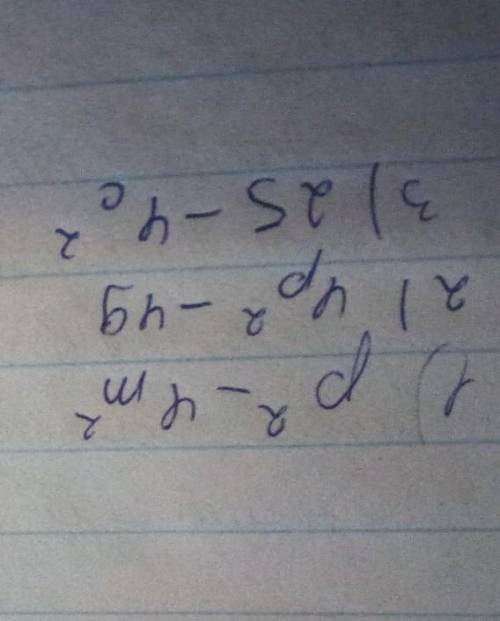 1) p² - 4m²
2) 4p² - 49
3) 25 - 4c²